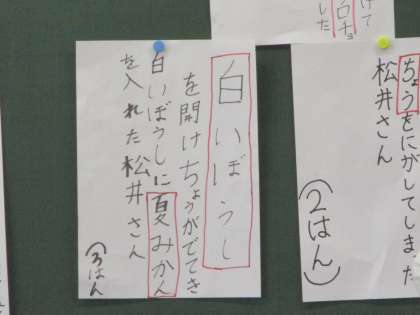 ちょうをにがしてしまた
松井さん
(2はん)
けて
した
白チョ
白いぼうし
を開けちょうがでてき
白いぼうしに夏みかん
を入れた松井さん
(3はん